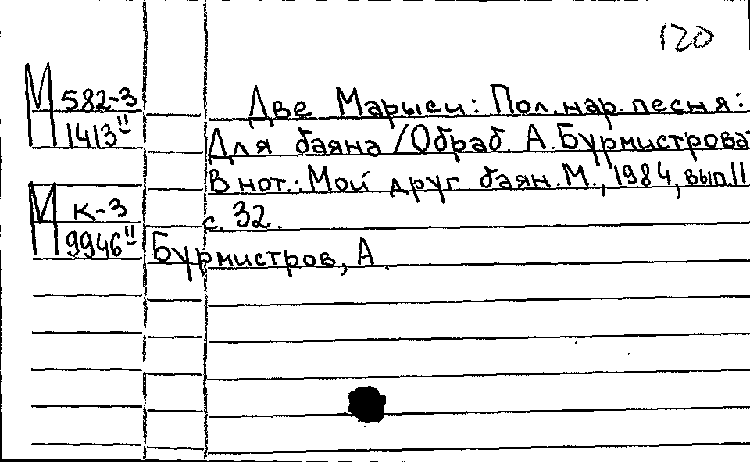 120
М 582-3
1413 II
Две Марыси: Пол. нар. песня:
Для баяна / Обраб. А. Бурмистрова
В нот.: Мой друг баян. М., 1984, вып. 11
с. 32.
М К-3
9946 II
Бурмистров, А.